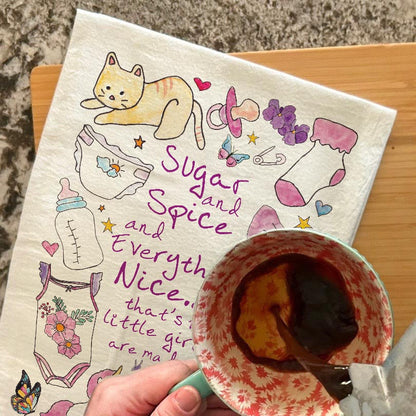 Sugar
and
Spice
and
Everyth
Nice...
that's
little gir
are ma